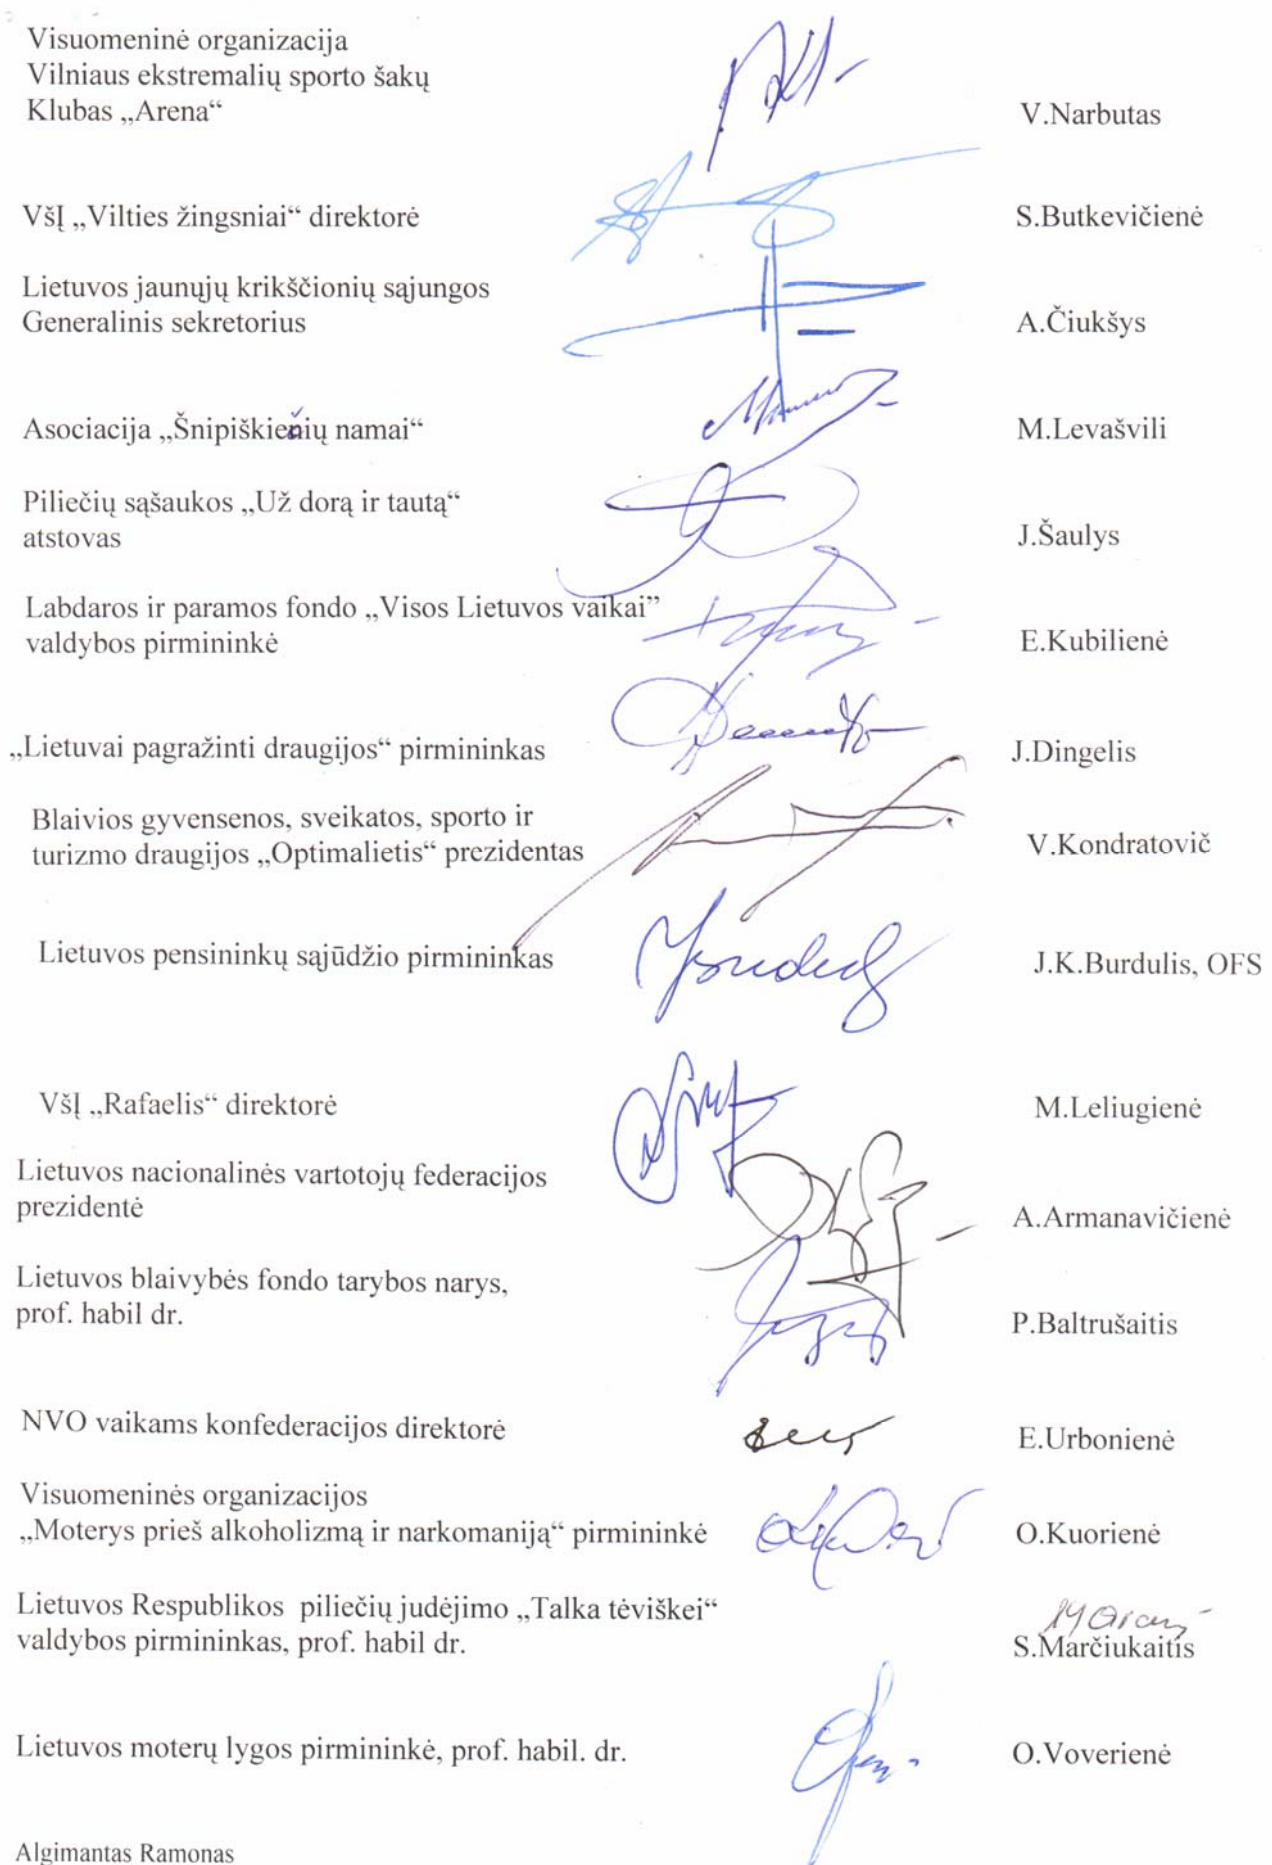 Visuomeninė organizacija
Vilniaus ekstremalių sporto šakų
Klubas „Arena“ V.Narbutas
VšĮ „Vilties žingsniai“ direktorė S.Butkevičienė
Lietuvos jaunųjų krikščionių sąjungos
Generalinis sekretorius A.Čiukšys
Asociacija „Šnipiškiečių namai“ M.Levašvili
Piliečių sąšaukos „Už dorą ir tautą“
atstovas J.Šaulys
Labdaros ir paramos fondo „Visos Lietuvos vaikai”
valdybos pirmininkė E.Kubilienė
„Lietuvai pagražinti draugijos“ pirmininkas J.Dingelis
Blaivios gyvensenos, sveikatos, sporto ir
turizmo draugijos „Optimalietis“ prezidentas V.Kondratovič
Lietuvos pensininkų sąjūdžio pirmininkas J.K.Burdulis, OFS
VšĮ „Rafaelis“ direktorė M.Leliugienė
Lietuvos nacionalinės vartotojų federacijos
prezidentė A.Armanavičienė
Lietuvos blaivybės fondo tarybos narys,
prof. habil dr. P.Baltrušaitis
NVO vaikams konfederacijos direktorė E.Urbonienė
Visuomeninės organizacijos
„Moterys prieš alkoholizmą ir narkomaniją“ pirmininkė O.Kuorienė
Lietuvos Respublikos piliečių judėjimo „Talka tėviškei“
valdybos pirmininkas, prof. habil dr. S.Marčiukaitis
Lietuvos moterų lygos pirmininkė, prof. habil. dr. O.Voverienė
Algimantas Ramonas